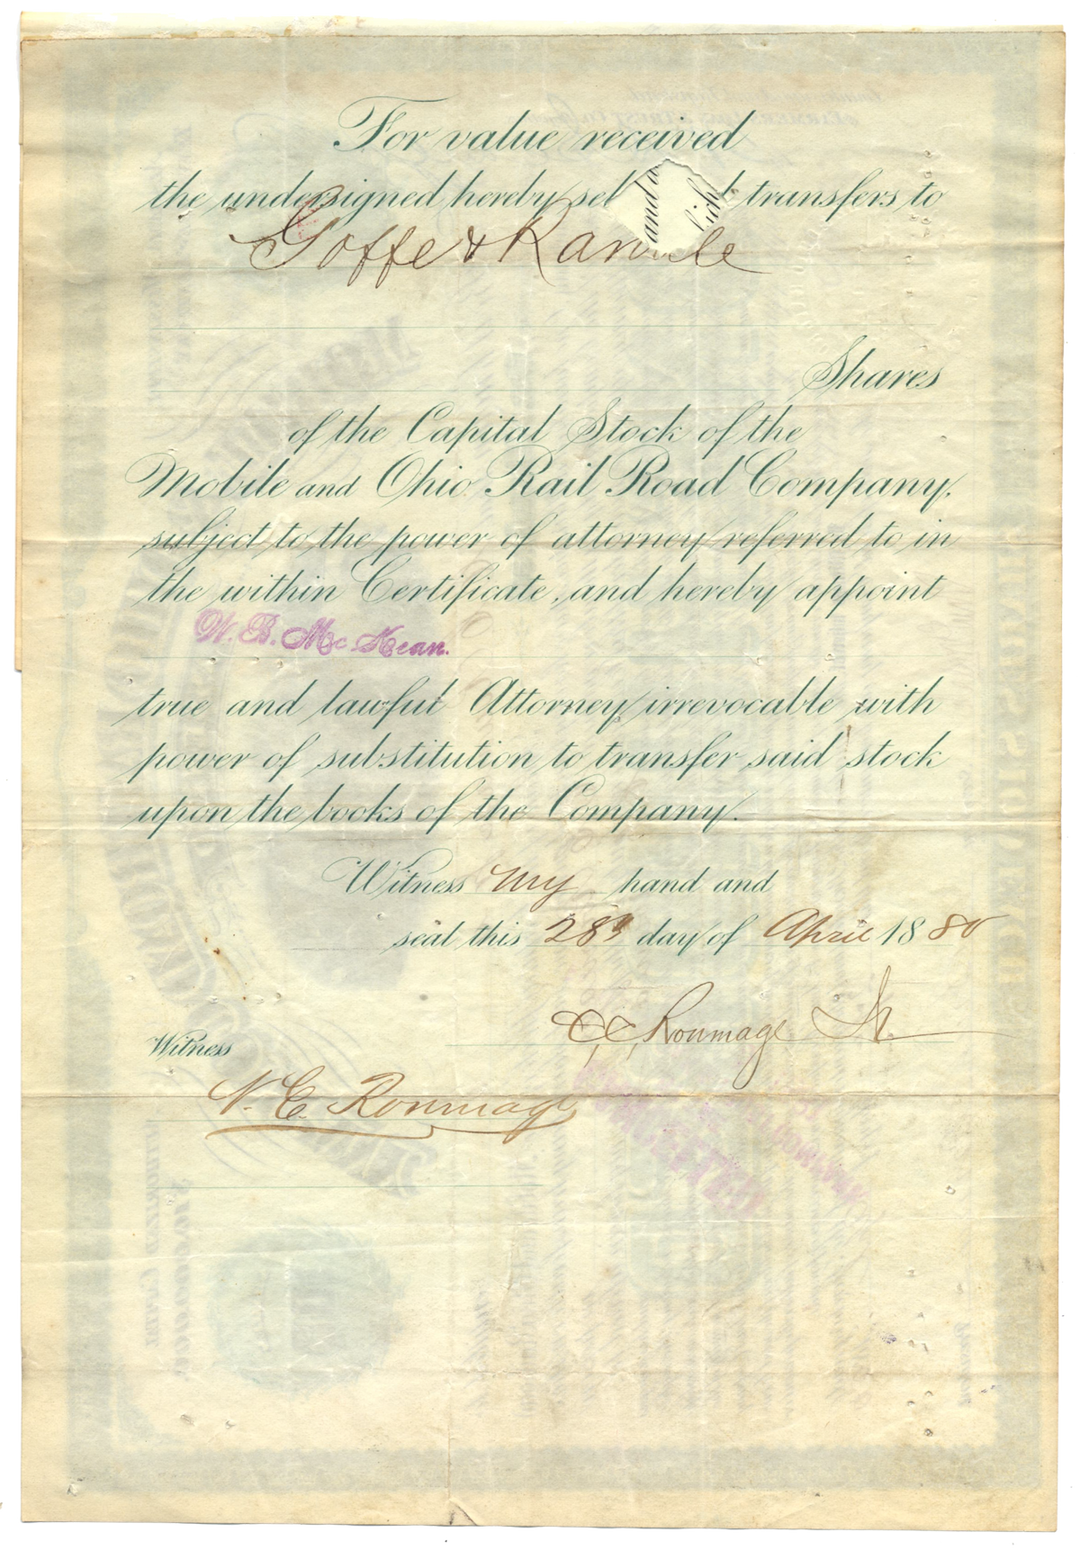 For value received
the undersigned hereby sel transfers to
and a
Goffe & Ran le
Shares
of the Capital Stock of the
Mobile and Ohio Rail Road Company,
subject to the power of attorney referred to in
the within Certificate, and hereby appoint
W. B. McKean.
true and lawful Attorney irrevocable with
power of substitution to transfer said stock
upon the books of the Company.
Witness my hand and
seal this 28 day of April 1880
Roumage Jr.
Witness
N. C. Roumage